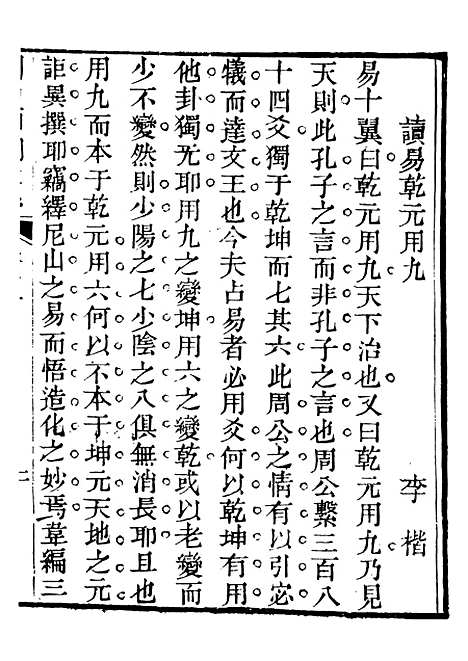 讀易乾元用九　李楷
易十翼曰乾元用九天下治也又曰乾元用九乃見
天則此孔子之言而非孔子之言也周公繫三百八
十四爻獨于乾坤而七其六此周公之情有以引宓
犧而達文王也今夫占易者必用爻何以乾坤有用
他卦獨无耶用九之變坤用六之變乾或以老變而
少不變然則少陽之七少陰之八俱無消長耶且也
用九而本于乾元用六何以不本于坤元天地之元
詎異撰耶竊繹尼山之易而悟造化之妙焉韋編三